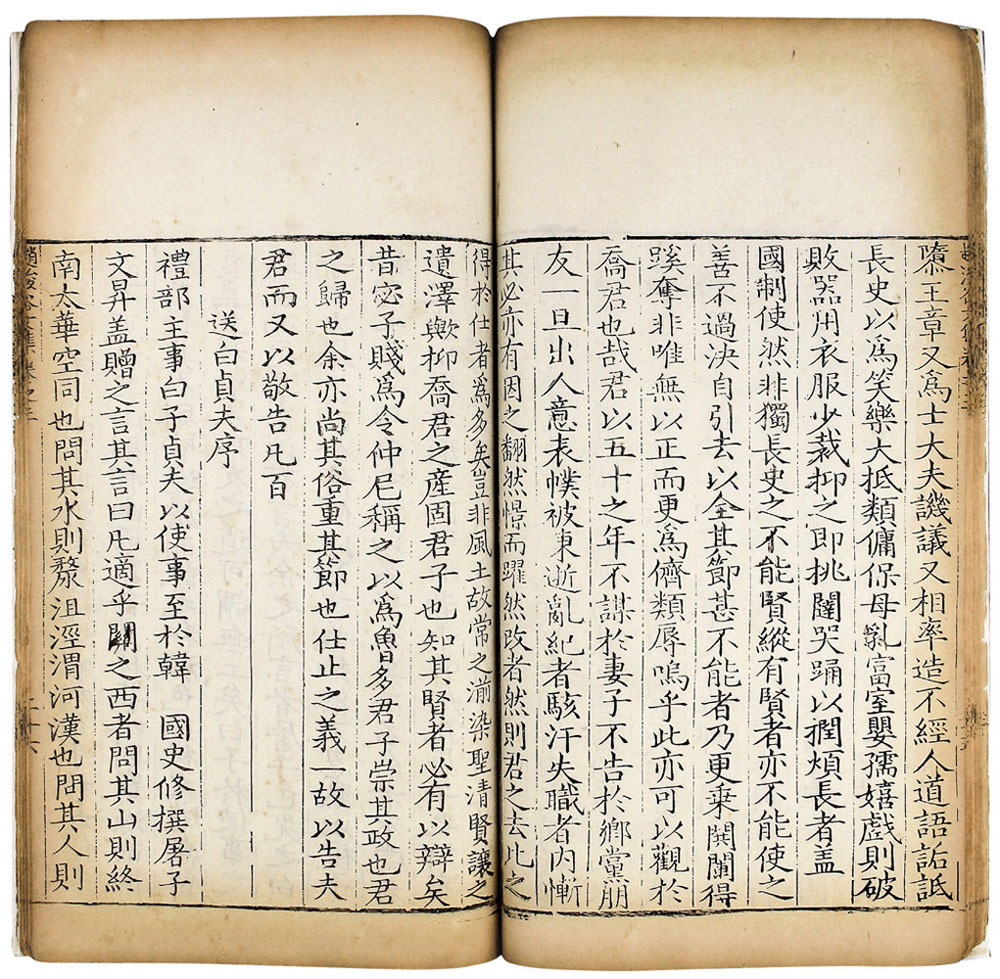 隳王章又爲士大夫譏議又相率造不經人道語詬詆
長史以爲笑樂大抵類傭保母乳富室嬰孺嬉戲則破
敗器用衣服少裁抑之即挑闥哭踊以撋煩長者盖
國制使然非獨長史之不能賢縱有賢者亦不能使之
善不過決自引去以全其節甚不能者乃更乗閧闠得
蹊奪非唯無以正而更爲儕類辱嗚乎此亦可以觀於
喬君也哉君以五十之年不謀於妻子不告於鄉黨朋
友一旦出人意表幞被東逝亂紀者駭汗失職者内慚
其必亦有因之翻然憬而躍然改者然則君之去此之
得於仕者爲多矣豈非風土故常之漸染聖清賢讓之
遺澤歟抑喬君之産固君子也知其賢者必有以辯矣
昔宓子賤爲令仲尼稱之以爲魯多君子崇其政也君
之歸也余亦尚其俗重其節也仕止之義一故以告夫
君而又以敬告凡百
送白貞夫序
禮部主事白子貞夫以使事至於韓 國史修撰屠子
文昇盖贈之言其言曰凡適乎關之西者問其山則終
南太華空同也問其水則漦沮涇渭河漢也問其人則
趙浚谷文集卷之三 二十六